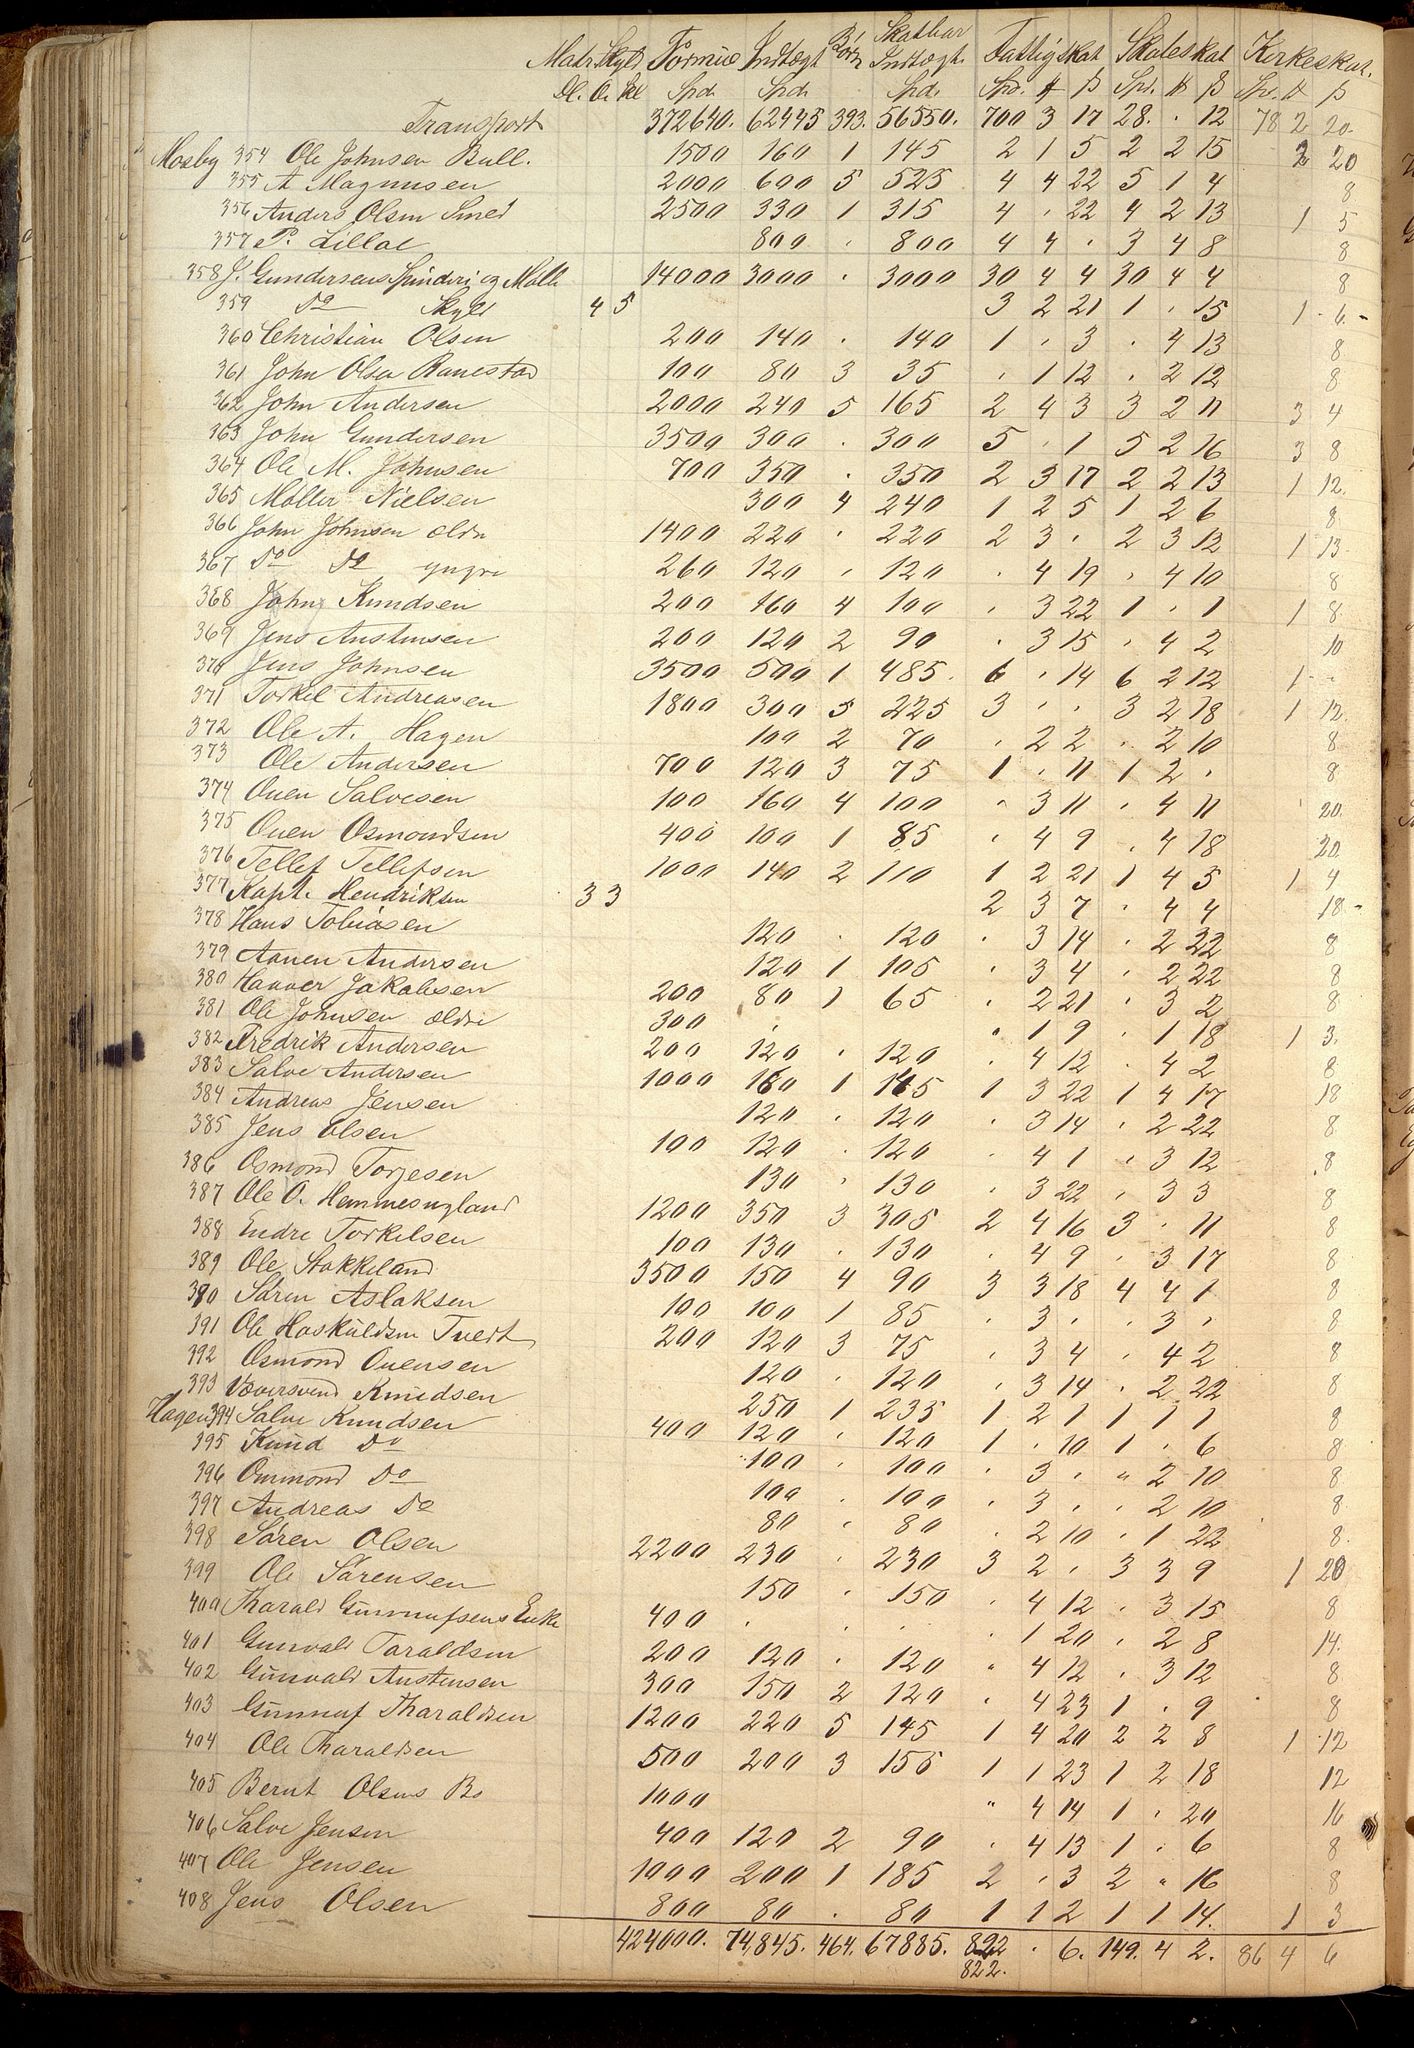 Matr. Skyld Formue Indtægt Børn Skatbar Indtægt. Fattigskat Skoleskat Kirkeskat.
Dl. O. Sk Spd. Spd. Spd. Spd. ß Spd. ß Sp. ß
Transport 372640. 62445 393. 56550. 700 3 17 28. . 12 78 2 20.
Mosby 354 Ole Johnsen Bull. 1500 160 1 145 2 1 5 2 2 15 2 20
355 A Magnusen 2000 600 5 525 4 4 22 5 1 4 8
356 Anders Olsen Smed 2500 330 1 315 4 . 22 4 2 13 1 5
357 P. Lilloe 800 . 800 4 4 . 3 4 8 8
358 J. Gundersens Spinderi og Mølle 14000 3000 . 3000 30 4 4 30 4 4 8
359 Do Skyld 4 5 3 2 21 1 . 15 1 - 6 -
360 Christian Olsen 200 140 . 140 1 . 3 . 4 13 8
361 John Olsen Ranestad 100 80 3 35 . 1 12 . 2 12 8
362 John Andersen 2000 240 5 165 2 4 3 3 2 11 3 4
363 John Gundersen 3500 300 . 300 5 . 1 5 2 16 3 8
364 Ole M. Johnsen 700 350 . 350 2 3 17 2 2 13 1 12.
365 Møller Nielsen 300 4 240 1 2 5 1 2 6 8
366 John Johnsen ældre 1400 220 . 220 2 3 . 2 3 12 1 13.
367 Do Do yngre 260 120 . 120 . 4 19 . 4 10 8
368 John Knudsen 200 160 4 100 . 3 22 1 . 1 1 8
369 Jens Austensen 200 120 2 90 . 3 15 . 4 2 10
370 Jens Johnsen 3500 500 1 485. 6 . 14 6 2 12 1 -
371 Torkel Andreasen 1800 300 5 225 3 . . 3 2 18 1 12.
372 Ole A. Hagen 100 2 70 . 2 2 . 2 10 8
373 Ole Andersen 700 120 3 75 1 . 11 1 2 . 8
374 Ouen Salvesen 100 160 4 100 . 3 11 . 4 11 20.
375 Ouen Osmondsen 400 100 1 85 . 4 9 . 4 18 20.
376 Tellef Tellefsen 1000 140 2 110 1 2 21 1 4 5 1 4
377 Kapt. Hendriksen 3 3 2 3 7 . 4 4 18 -
378 Hans Tobiasen 120 . 120 . 3 14 . 2 22 8
379 Aanen Andersen 120 1 105 . 3 4 . 2 22 8
380 Haaver Jakobsen 200 80 1 65 . 2 21 . 3 2 8
381 Ole Johnsen ældre 300 . . 1 9 . 1 18 1 3.
382 Fredrik Andersen 200 120 . 120 . 4 12 . 4 2 8
383 Salve Andersen 1000 160 1 145 1 3 22 1 4 17 18
384 Andreas Jensen 120 . 120 . 3 14 . 2 22 8
385 Jens Olsen 100 120 . 120 . 4 1 . 3 12 8
386 Osmond Torjesen 130 . 130 . 3 22 . 3 3 8
387 Ole O. Hemmesugland 1200 350 3 305 2 4 16 3 . 11 8
388 Endre Torkelsen 100 130 . 130 . 4 9 . 3 17 8
389 Ole Stokkeland 3500 150 4 90 3 3 18 4 4 1 8
390 Søren Aslaksen 100 100 1 85 . 3 . . 3 . 8
391 Ole Haskuldsen Tvedt 200 120 3 75 . 3 4 . 4 2 8
392 Osmond Ouensen 120 . 120 . 3 14 . 2 22 8
393 Væversvend Knudsen 250 1 235 1 2 1 1 1 1 8
Hagen 394 Salve Knudsen 400 120 . 120 1 . 10 1 . 6 8
395 Knud Do 100 . 100 . 3 . " 2 10 8
396 Ommond Do 100 . 100 . 3 . . 2 10 8
397 Andreas Do 80 . 80 . 2 10 . 1 22 8.
398 Søren Olsen 2200 230 . 230 3 2 . 3 3 9 1 20
399 Ole Sørensen 150 . 150 . 4 12 . 3 15 8
400 Tharald Gunnufsens Enke 400 . . . . 1 20 . 2 8 14.
401 Gunvald Taraldsen 200 120 . 120 " 4 12 . 3 12 8
402 Gunvald Austensen 300 150 2 120 . 4 23 1 . 9 8
403 Gunnuf Tharaldsen 1200 220 5 145 1 4 20 2 2 8 1 12
404 Ole Tharaldsen 500 200 3 155 1 1 23 1 2 18 12
405 Bernt Olsens Bo 1000 " 4 14 1 . 20 16
406 Salve Jensen 400 120 2 90 . 4 13 1 . 6 8
407 Ole Jensen 1000 200 1 185 2 . 3 2 " 16 8
408 Jens Olsen 800 80 . 80 1 1 2 1 1 14. 1 3
424000. 74,845. 464. 67885. 822 . 6. 149. 4 2. 86 4 6
822.